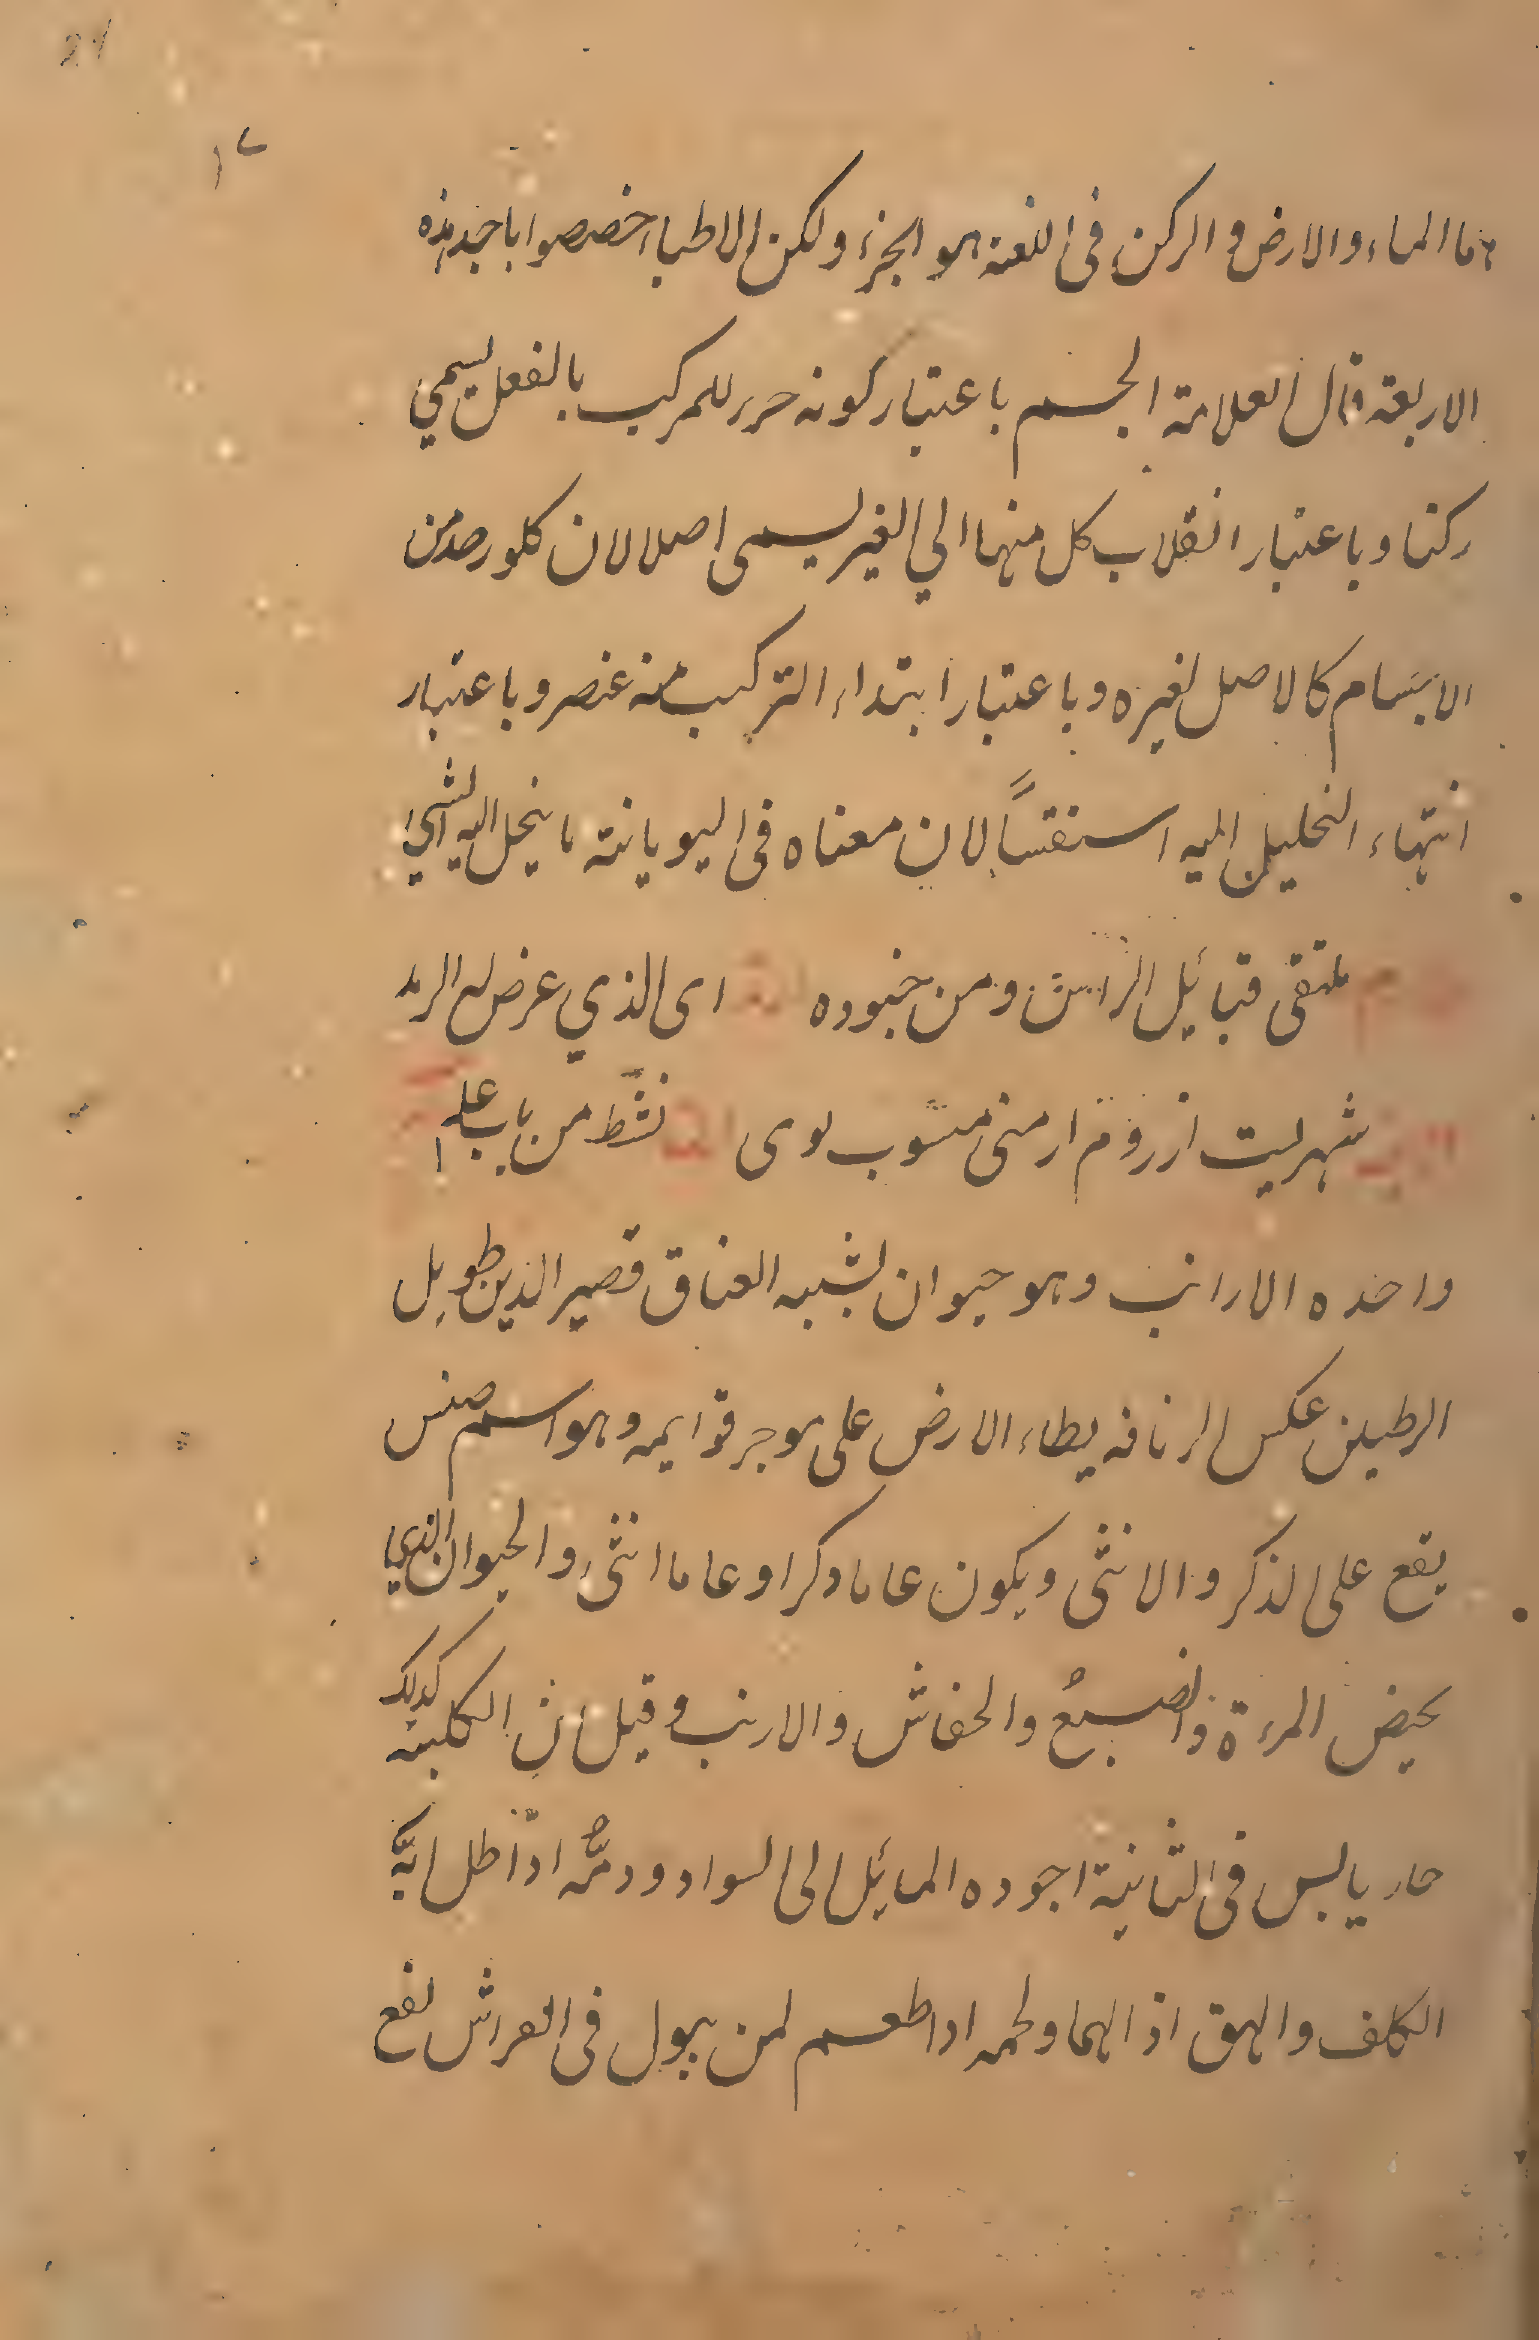 21
١٢
هما الماء والارض والركن فى اللغة هو الجزء ولكن الاطباء خصصوا باحد هذه
الاربعة قال العلامة الجسم باعتبار كونه جزء للمركب بالفعل يسمي
ركنا وباعتبار انقلاب كل منها الي الغير يسمى اصلا لان كلو احد من
الاجسام كالاصل لغيره وباعتبار ابتداء التركيب منه عنصر وباعتبار
انتهاء التحليل اليه استقسًا لان معناه فى اليونانية ما ينحل اليه الشيئ
ملتقى قبائل الراس ومن حنبوده اى الذي عرض له الرمد
شهريست از روم ارمنى منسوب بوى نشط من باب علم
واحده الارانب وهو حيوان يشبه العناق قصير اليدين طويل
الرجلين عكس الزنافه يطاء الارض على موخر قوايمه وهو اسم جنس
يقع على الذكر والانثى ويكون عاما ذكرا وعاما انثى والحيوان الذي
يحيض المرءة والضبعُ والخفاش والارنب وقيل ان الكلبة كذلك
حار يابس فى الثانية اجوده المائل الى السواد ودمُّه اذا طلى به
الكلف والبهق اذالهما ولحمه اذا طعم لمن يبول فى الفراش نفع